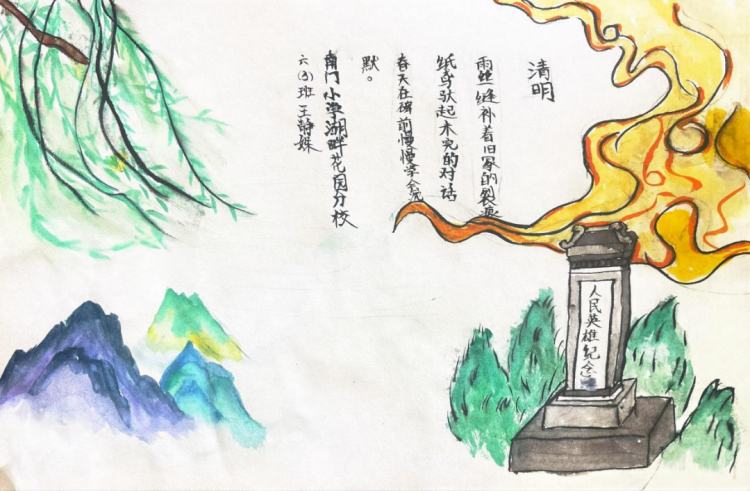 清明
雨丝缝补着旧冢的裂痕
纸鸢驮起未完的对话
春天在碑前慢慢学会沉
默。
南门小学湖畔花园分校
六(3)班 王静姝
人民英雄纪念